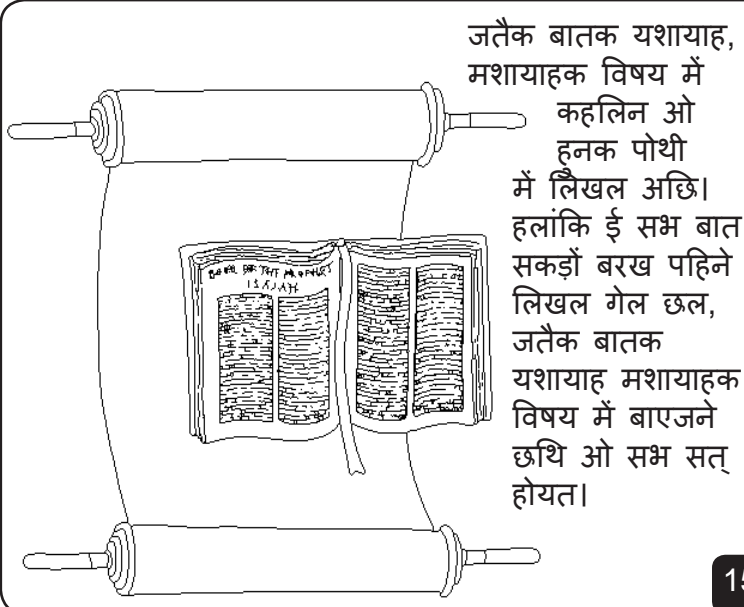 जतैक बातक यशायाह,
मशायाहक विषय में
कहलिन ओ
हुनक पोथी
में लिखल अछि।
हलांकि ई सभ बात
सकड़ों बरख पहिने
लिखल गेल छल,
जतैक बातक
यशायाह मशायाहक
विषय में बाएजने
छथि ओ सभ सत्
होयत।
THE PROPHET
ISAIAH
15